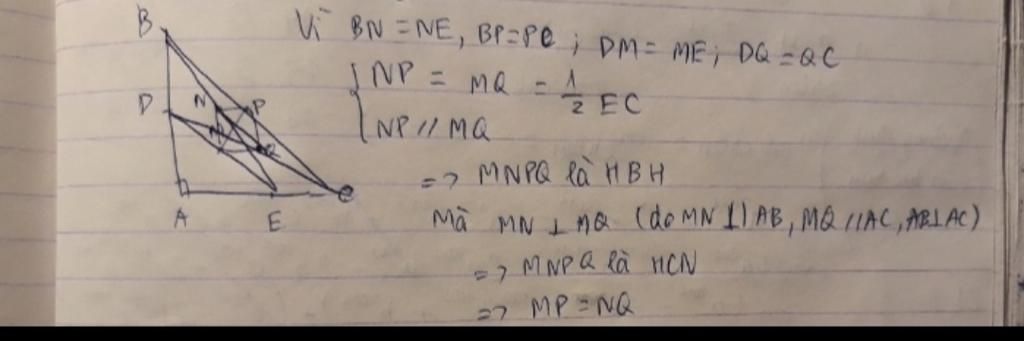 B
Vì BN = NE, BP = PC ; DM = ME; DQ = QC
D N P
{ NP = MQ = 1/2 EC
NP // MQ
M Q
=> MNPQ là HBH
A E C
Mà MN ⊥ MQ (do MN // AB, MQ // AC, AB ⊥ AC)
=> MNPQ là HCN
=> MP = NQ